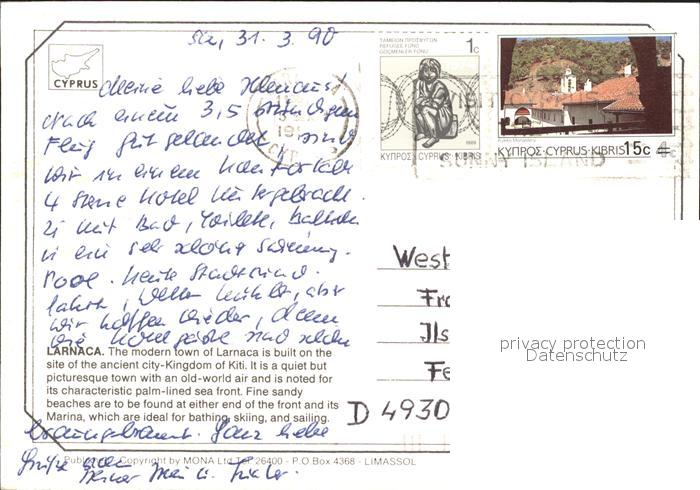 31. 3. 90
CYPRUS
ΤΑΜΕΙΟΝ ΠΡΟΣΦΥΓΩΝ
REFUGEE FUND
GÖÇMENLER FONU
1c
1989
ΚΥΠΡΟΣ·CYPRUS·KIBRIS
ΚΥΠΡΟΣ·CYPRUS·KIBRIS 15c
SUNNY ISLAND
Meine liebe
nach einem 3,5 stündigen
Flug gut gelandet sind
wir in einem
4 Sterne Hotel untergebracht.
Zi mit Bad, Toilette, Balkon
u ein sehr schöner Swimming-
Pool. Heute Stadtrund-
fahrt, Wetter kühler, aber
wir hoffen wieder, denn
die Hotelgäste sind schon
braungebrannt. Ganz liebe
Grüße
LARNACA. The modern town of Larnaca is built on the
site of the ancient city-Kingdom of Kiti. It is a quiet but
picturesque town with an old-world air and is noted for
its characteristic palm-lined sea front. Fine sandy
beaches are to be found at either end of the front and its
Marina, which are ideal for bathing, skiing, and sailing.
Copyright by MONA Ltd Tel 26400 - P.O Box 4368 - LIMASSOL
West
Fra
Ils
Fe
D 4930
privacy protection
Datenschutz